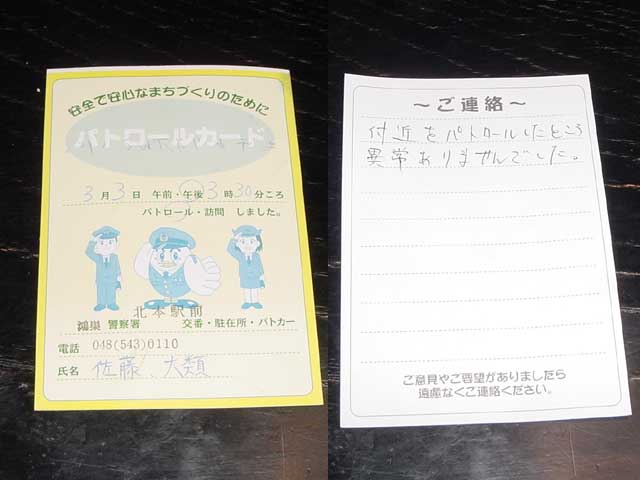 安全で安心なまちづくりのために
パトロールカード
3月3日 午前・午後3時30分ころ
パトロール・訪問 しました。
北本駅前
鴻巣 警察署 交番・駐在所・パトカー
電話 048(543)0110
氏名 佐藤、大類
～ご連絡～
付近をパトロールしたところ
異常ありませんでした。
ご意見やご要望がありましたら
遠慮なくご連絡ください。